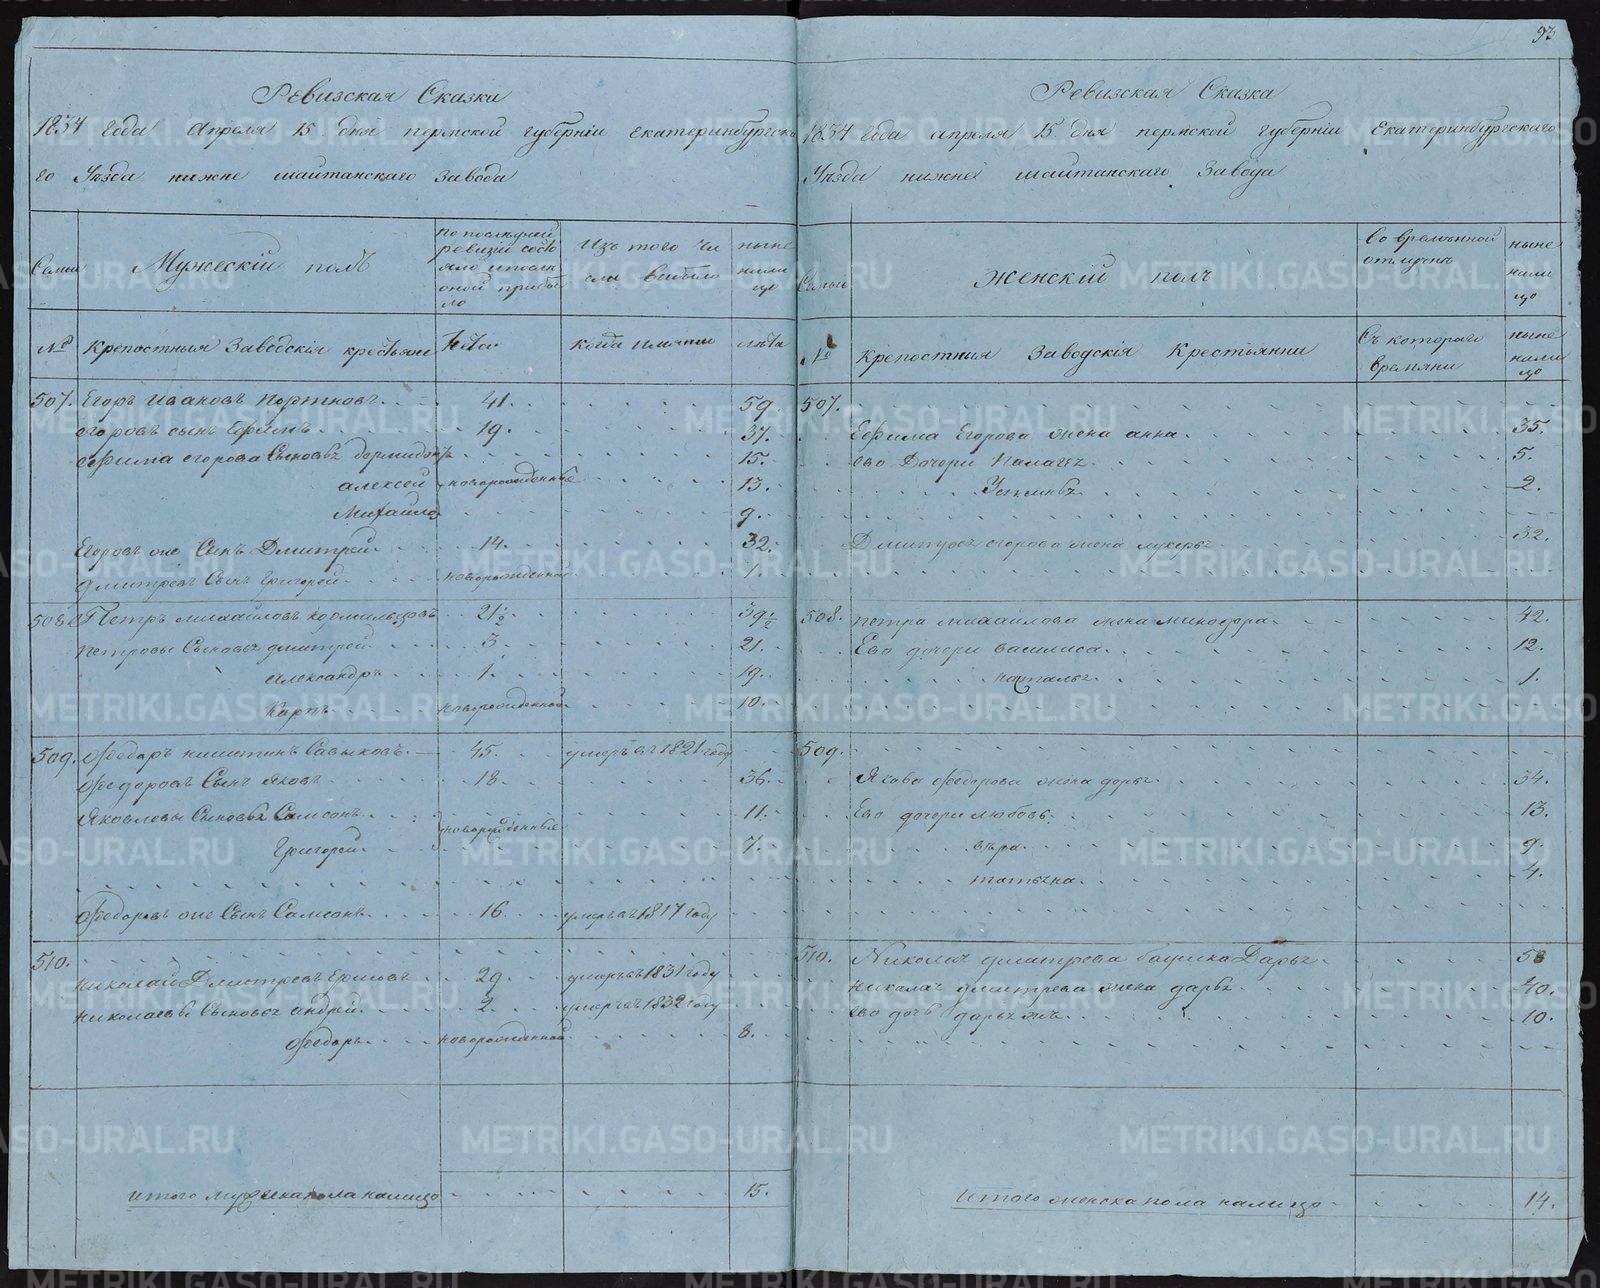 93
Ревизская Сказка
1834 Года Апреля 15 дня пермской губерніи Екатеринбургска
го Уѣзда нижне шайтанскаго завода
Семьи
Мужескій полъ
по послѣдней ревизіи состояло и послѣ оной прибыло
Изъ того числа выбыло
ныне на лицо
№
Крепостныя Заводскія крестьяне
Лѣта
Когда имянно
лѣта
507. Егоръ Ивановъ Портновъ 41. 59
Егоровъ сынъ Ефимъ 19. 37.
Ефима егорова Сыновья 15.
алексей новорожденные 13.
Михайло 9.
Егоровъ же Сынъ Дмитрей 14. 32.
дмитревъ Сынъ Григорей новорожденной 1.
508 Петръ михайловъ Кормильцовъ 21½ 39½
Петровы Сыновья дмитрей 3. 21.
Александръ 1. 19.
Карпъ новорожденной 10.
509. Федоръ никитинъ Савыковъ 45. умеръ в 1821 году
Федоровъ Сынъ Яковъ 18. 36.
Яковлевы Сыновья Самсонъ 11.
новорожденные
Григорей 7.
Федоровъ же Сынъ Самсонъ 16. умеръ в 1817 году
510.
Николай Дмитревъ 29. умеръ в 1831 году
Николаевы Сыновья андрей 2. умеръ в 1832 году
Федоръ новорожденной 8.
итого мужеска пола налицо 15.
Ревизская Сказка
1834 Года апреля 15 дня пермской губерніи Екатеринбургскаго
Уѣзда нижне шайтанскаго Завода
Семьи
Женскій полъ
Во временной отлучке
ныне на лицо
№
Крепостныя Заводскія Крестьянки
Съ котораго времяни
ныне на лицо
507.
Ефима Егорова жена анна 35.
ево Дочери Палагея 5.
Устинья 2.
Дмитрея егорова жена лукерья 32.
508. петра михайлова жена минодора 42.
Ево дочери василиса 12.
наталья 1.
509.
Якова Федорова жена дарья 34.
Ево дочери любовь 13.
вѣра 9.
татьяна 4.
510. Николая дмитрева Дарья 58
Николая дмитрева жена дарья 40.
ево дочь дарья ж 10.
Итого женска пола налицо 14.
METRIKI.GASO-URAL.RU